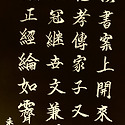 書案上開來
孝傳家子又
冠繼世文兼
正經綸如霽